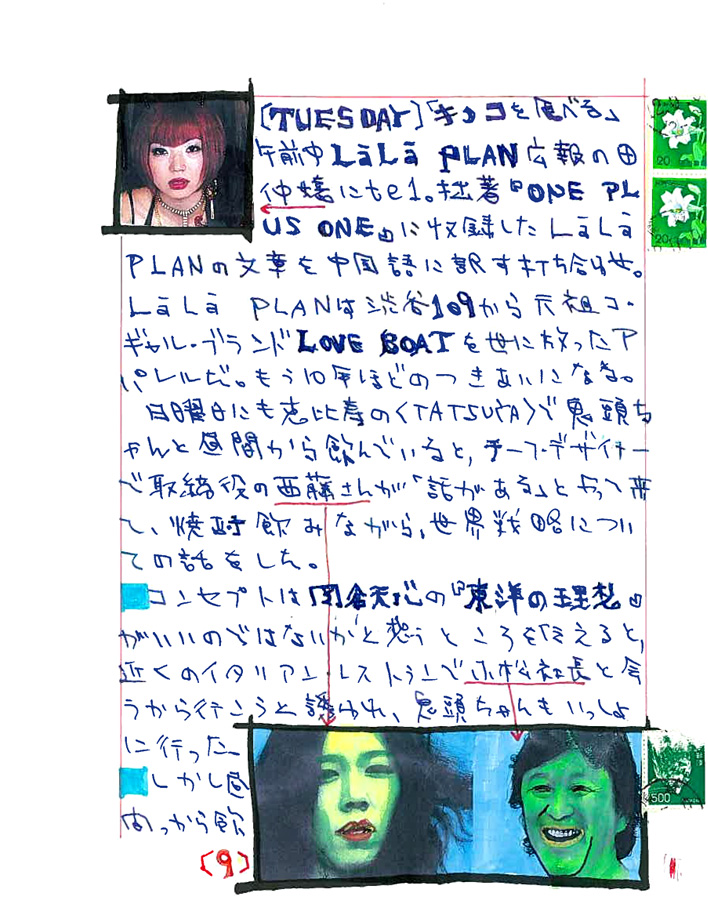 [TUESDAY]「キノコを食べる」
午前中LaLa PLAN広報の田
仲嬢にtel。拙著『ONE PL
US ONE』に収録したLaLa
PLANの文章を中国語に訳す打ち合わせ。
LaLa PLANは渋谷109から元祖コ・
ギャル・ブランドLOVE BOATを世に放ったア
パレルだ。もう10年ほどのつきあいになる。
日曜日にも恵比寿の〈TATSUYA〉で鬼頭ち
ゃんと昼間から飲んでいると,チーフ・デザイナー
で取締役の西藤さんが「話がある」とやって来
て、焼酎飲みながら,世界戦略につい
ての話をした。
コンセプトは岡倉天心の『東洋の理想』
がいいのではないか'と想うところを伝えると,
近くのイタリアン・レストランで赤松社長と会
うから行こうと誘われ、鬼頭ちゃんもいっしょ
に行った
しかし昼
から飲
(9)
20
20
500